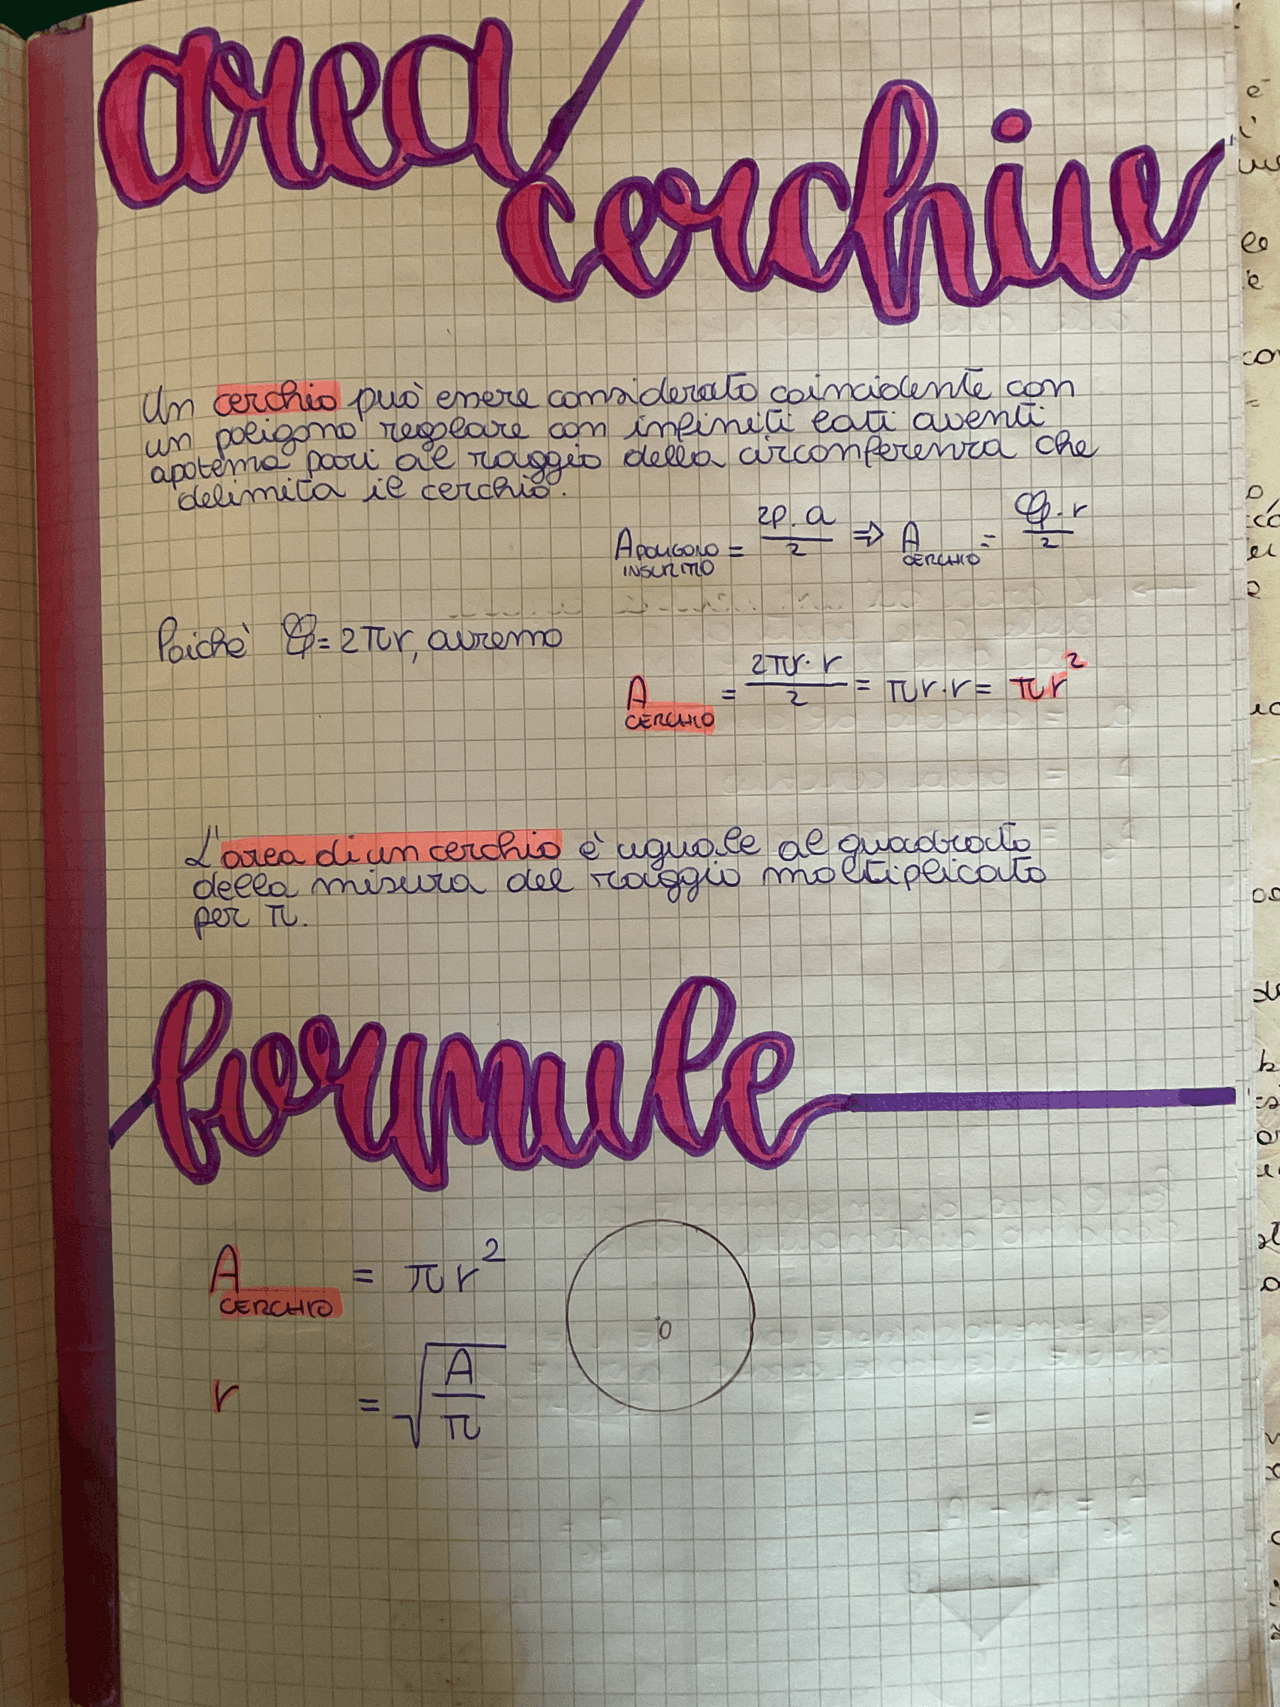 area
cerchio
Un cerchio può essere considerato coincidente con
un poligono regolare con infiniti lati aventi
apotema pari al raggio della circonferenza che
delimita il cerchio.
A POLIGONO INSCRITTO = 2p · a / 2 ⇒ A CERCHIO = 𝒞 · r / 2
Poichè 𝒞 = 2πr, avremo
A CERCHIO = 2πr · r / 2 = πr · r = πr²
L'area di un cerchio è uguale al quadrato
della misura del raggio moltiplicato
per π.
formule
A CERCHIO = πr²
O
r = √(A/π)